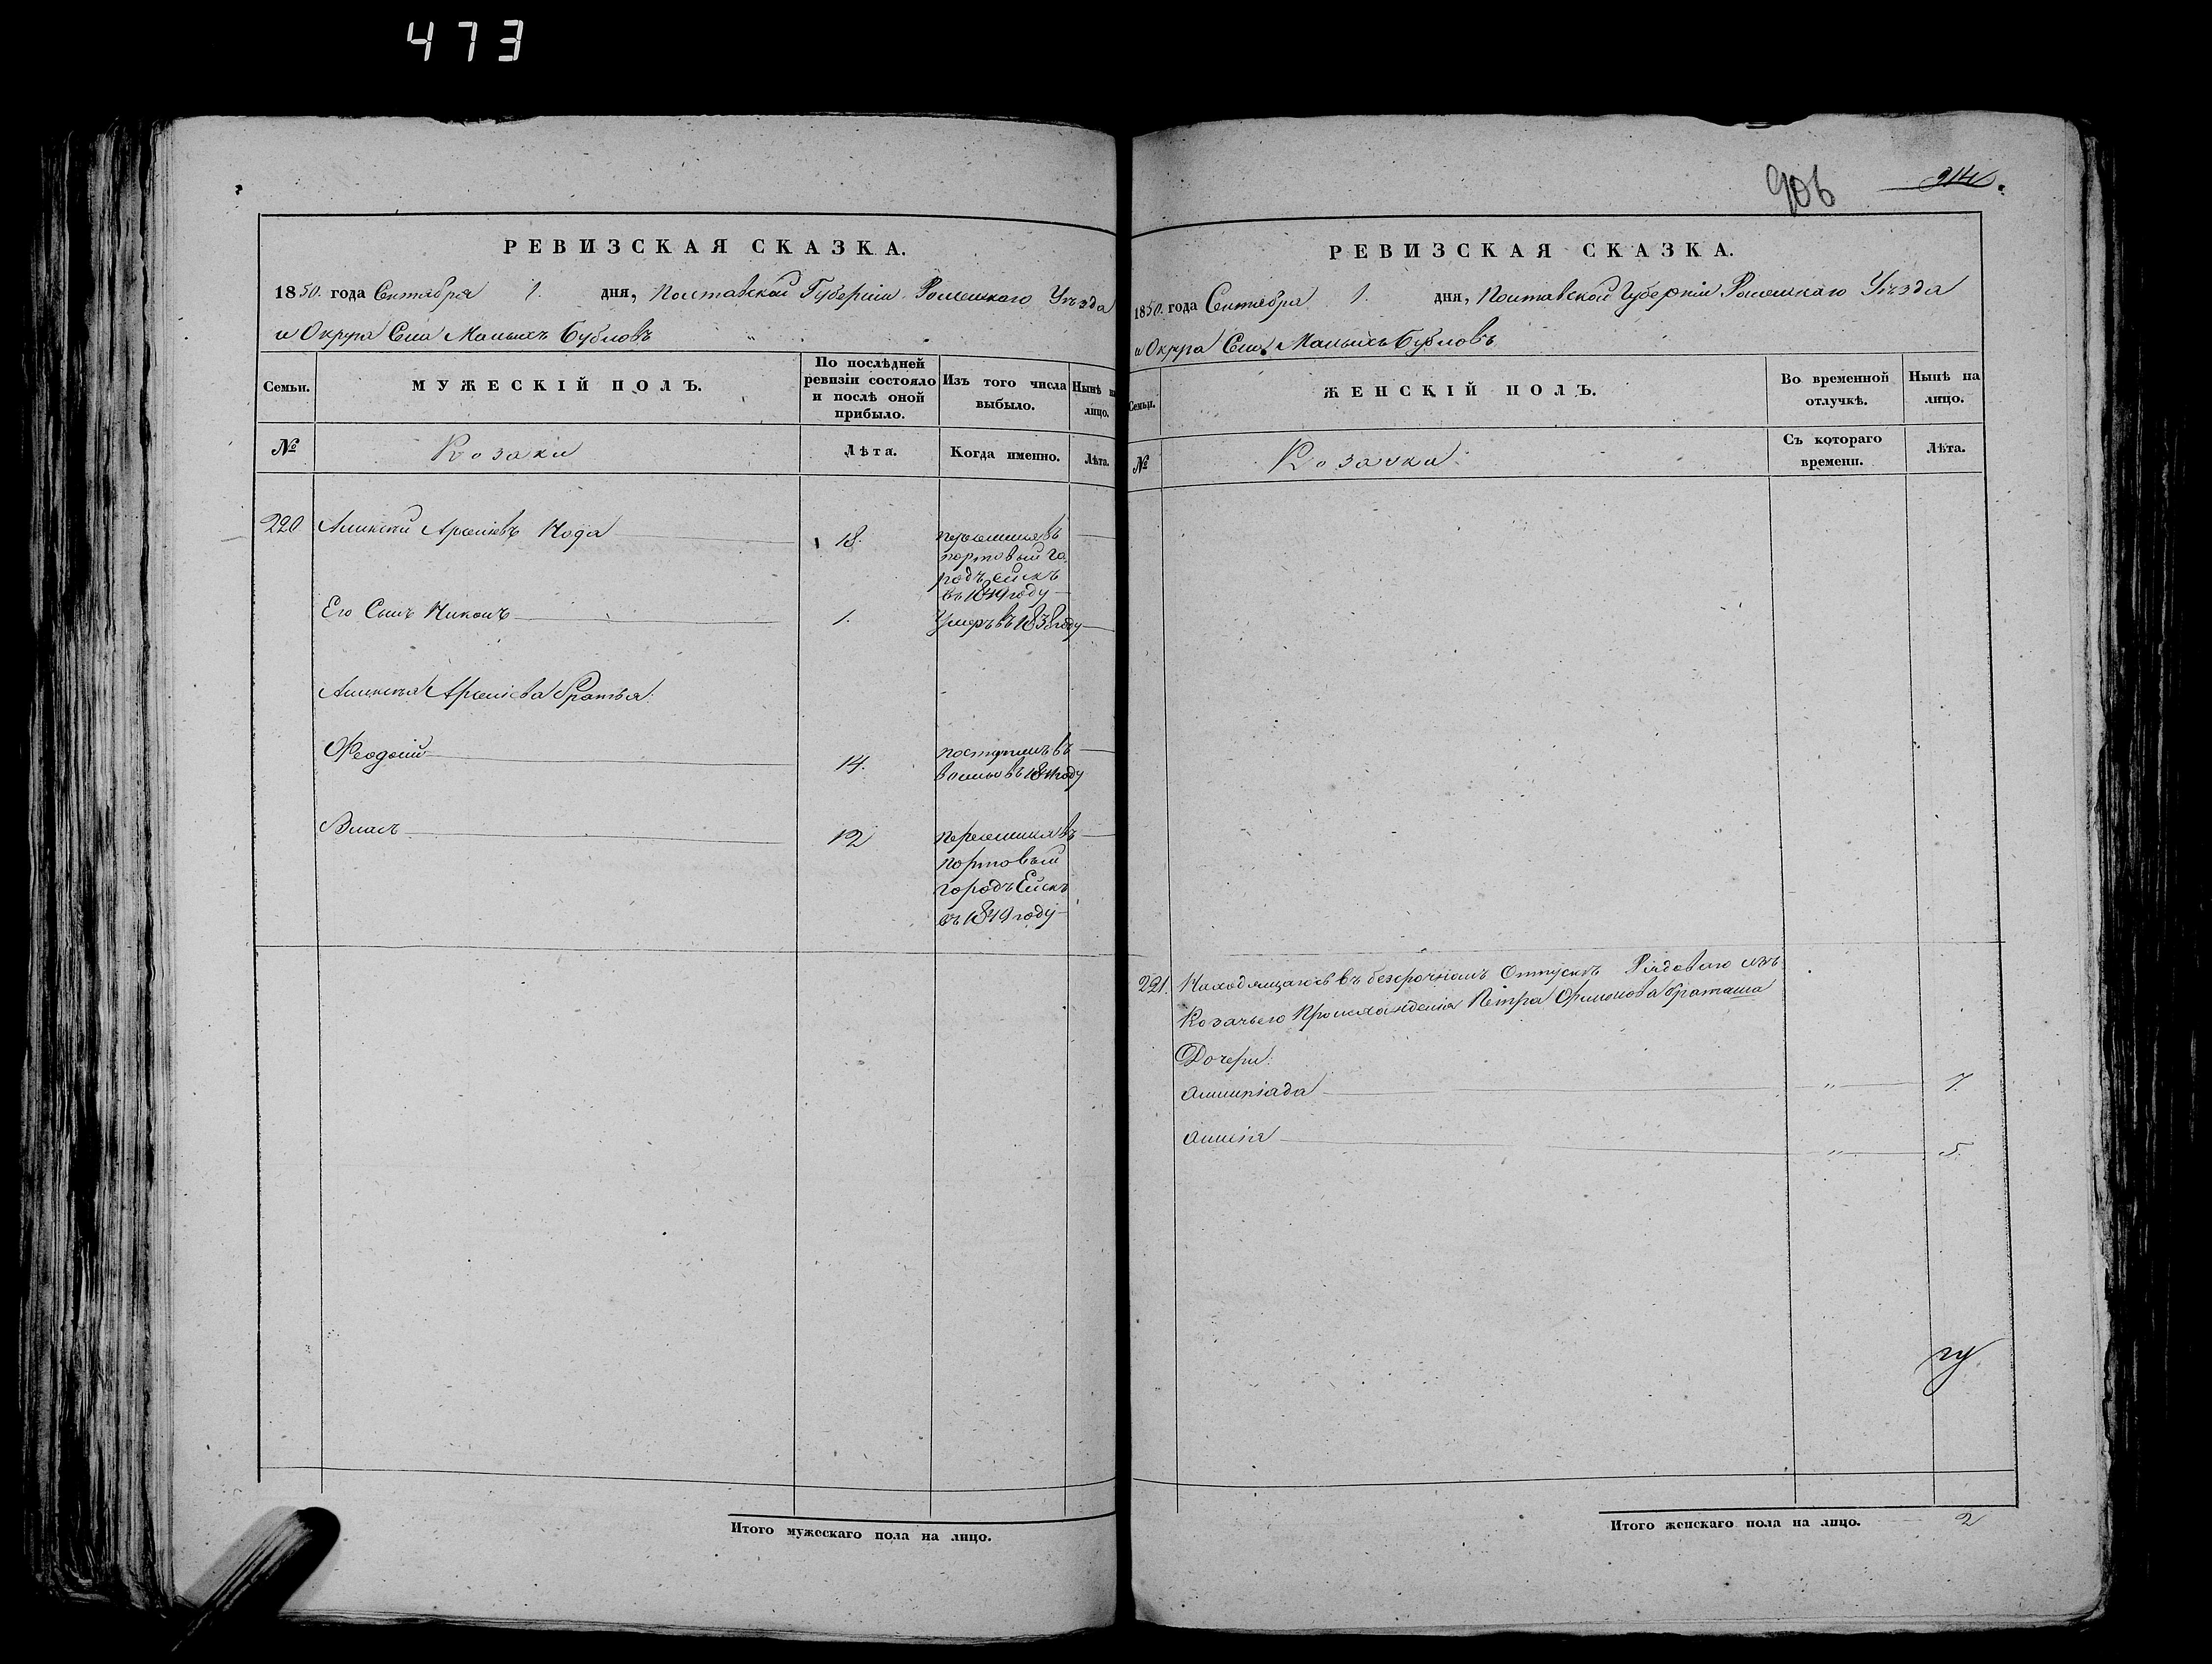 473
РЕВИЗСКАЯ СКАЗКА.
1850. года Сентября 1. дня, Полтавской Губернiи Роменскаго Уѣзда
и Округа Села Малыхъ Бубновъ
Семьи. МУЖЕСКIЙ ПОЛЪ. По послѣдней ревизiи состояло и послѣ оной прибыло. Изъ того числа выбыло. Нынѣ на лицо.
№ Козаки Лѣта. Когда именно. Лѣта.
220 Алексѣй Арсенiевъ Нога 18. переселился въ
портовый го
родъ Ейскъ
въ 1849 году
Его Сынъ Никонъ 1. Умеръ въ 1838 году
Алексѣя Арсенiева братья:
Феодосiй 14. поступилъ въ
1841 году
Власъ 12 переселился въ
портовый
городъ Ейскъ
въ 1849 году
Итого мужескаго пола на лицо.
906 914.
РЕВИЗСКАЯ СКАЗКА.
1850. года Сентября 1. дня, Полтавской Губернiи Роменскаго Уѣзда
и Округа Села Малыхъ Бубновъ
Семьи. ЖЕНСКIЙ ПОЛЪ. Во временной отлучкѣ. Нынѣ на лицо.
№ Козачки Съ котораго времени. Лѣта.
221. Находящагося въ безсрочномъ Отпускѣ Рядоваго изъ
Козачьего Происхожденiя Петра Браташа
Дочери:
Олимпiада " 7.
" 5.
Итого женскаго пола на лицо. 2